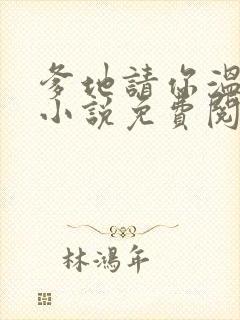 爹地請你溫
小說免費閱
林鴻年